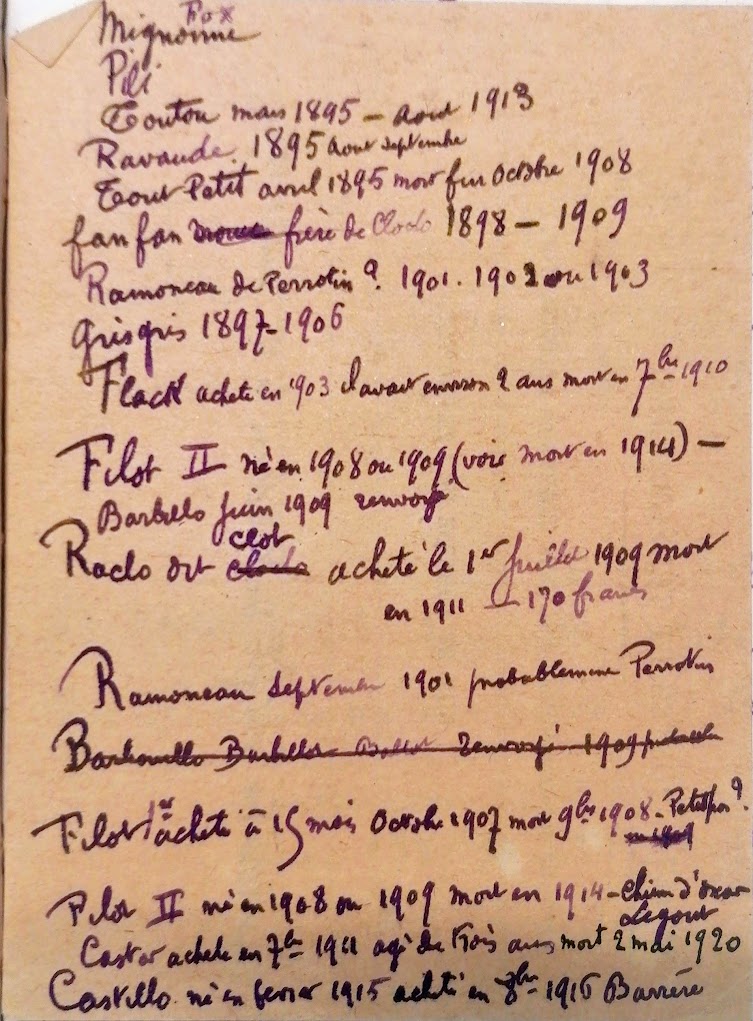 Fox
Mignonne
Pili
Toutou mars 1895 - aout 1913
Ravaude. 1895 aout septembre
Tout Petit avril 1895 mort fin Octobre 1908
fanfan frère de Cloclo 1898 - 1909
Ramoneau de Perrotin ? 1901. 1902 ou 1903
Grisgris 1897-1906
Flack achete en 1903 il avait environ 2 ans mort en 7bre 1910
Filot II né en 1908 ou 1909 (voir mort en 1914) -
Barbillo juin 1909 renvoyé
clot
Raclo dit cloclo acheté le 1er juillet 1909 mort
en 1911 - 170 francs
Ramoneau Septembre 1901 probablement Perrotin
Barbouillo Barbillot renvoyé 1909
Filot 1er acheté à 15 mois Octobre 1907 mort 9bre 1908 - Petitpon ?
Filot II né en 1908 ou 1909 mort en 1914 - chien d'oscar
Legout
Castor achete en 7bre 1911 agé de trois ans mort 2 mai 1920
Castillo né en fevrier 1915 acheté en 8bre 1916 Barrère